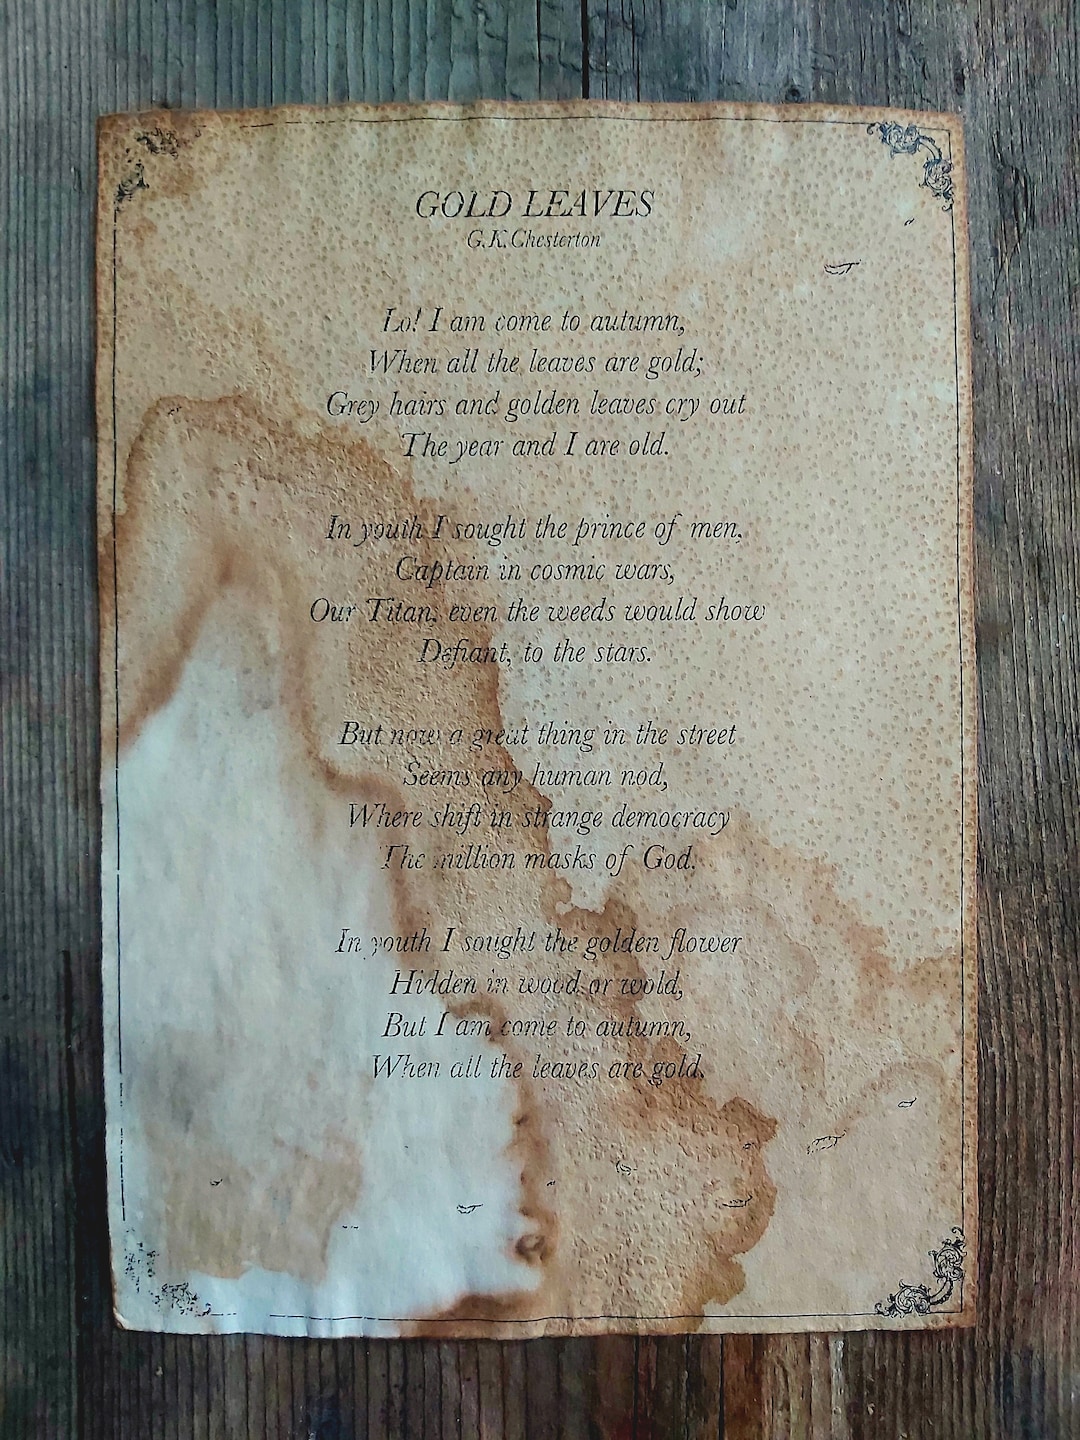 GOLD LEAVES
G.K.Chesterton
Lo! I am come to autumn,
When all the leaves are gold;
Grey hairs and golden leaves cry out
The year and I are old.
In youth I sought the prince of men,
Captain in cosmic wars,
Our Titan, even the weeds would show
Defiant, to the stars.
But now a great thing in the street
Seems any human nod,
Where shift in strange democracy
The million masks of God.
In youth I sought the golden flower
Hidden in wood or wold,
But I am come to autumn,
When all the leaves are gold.